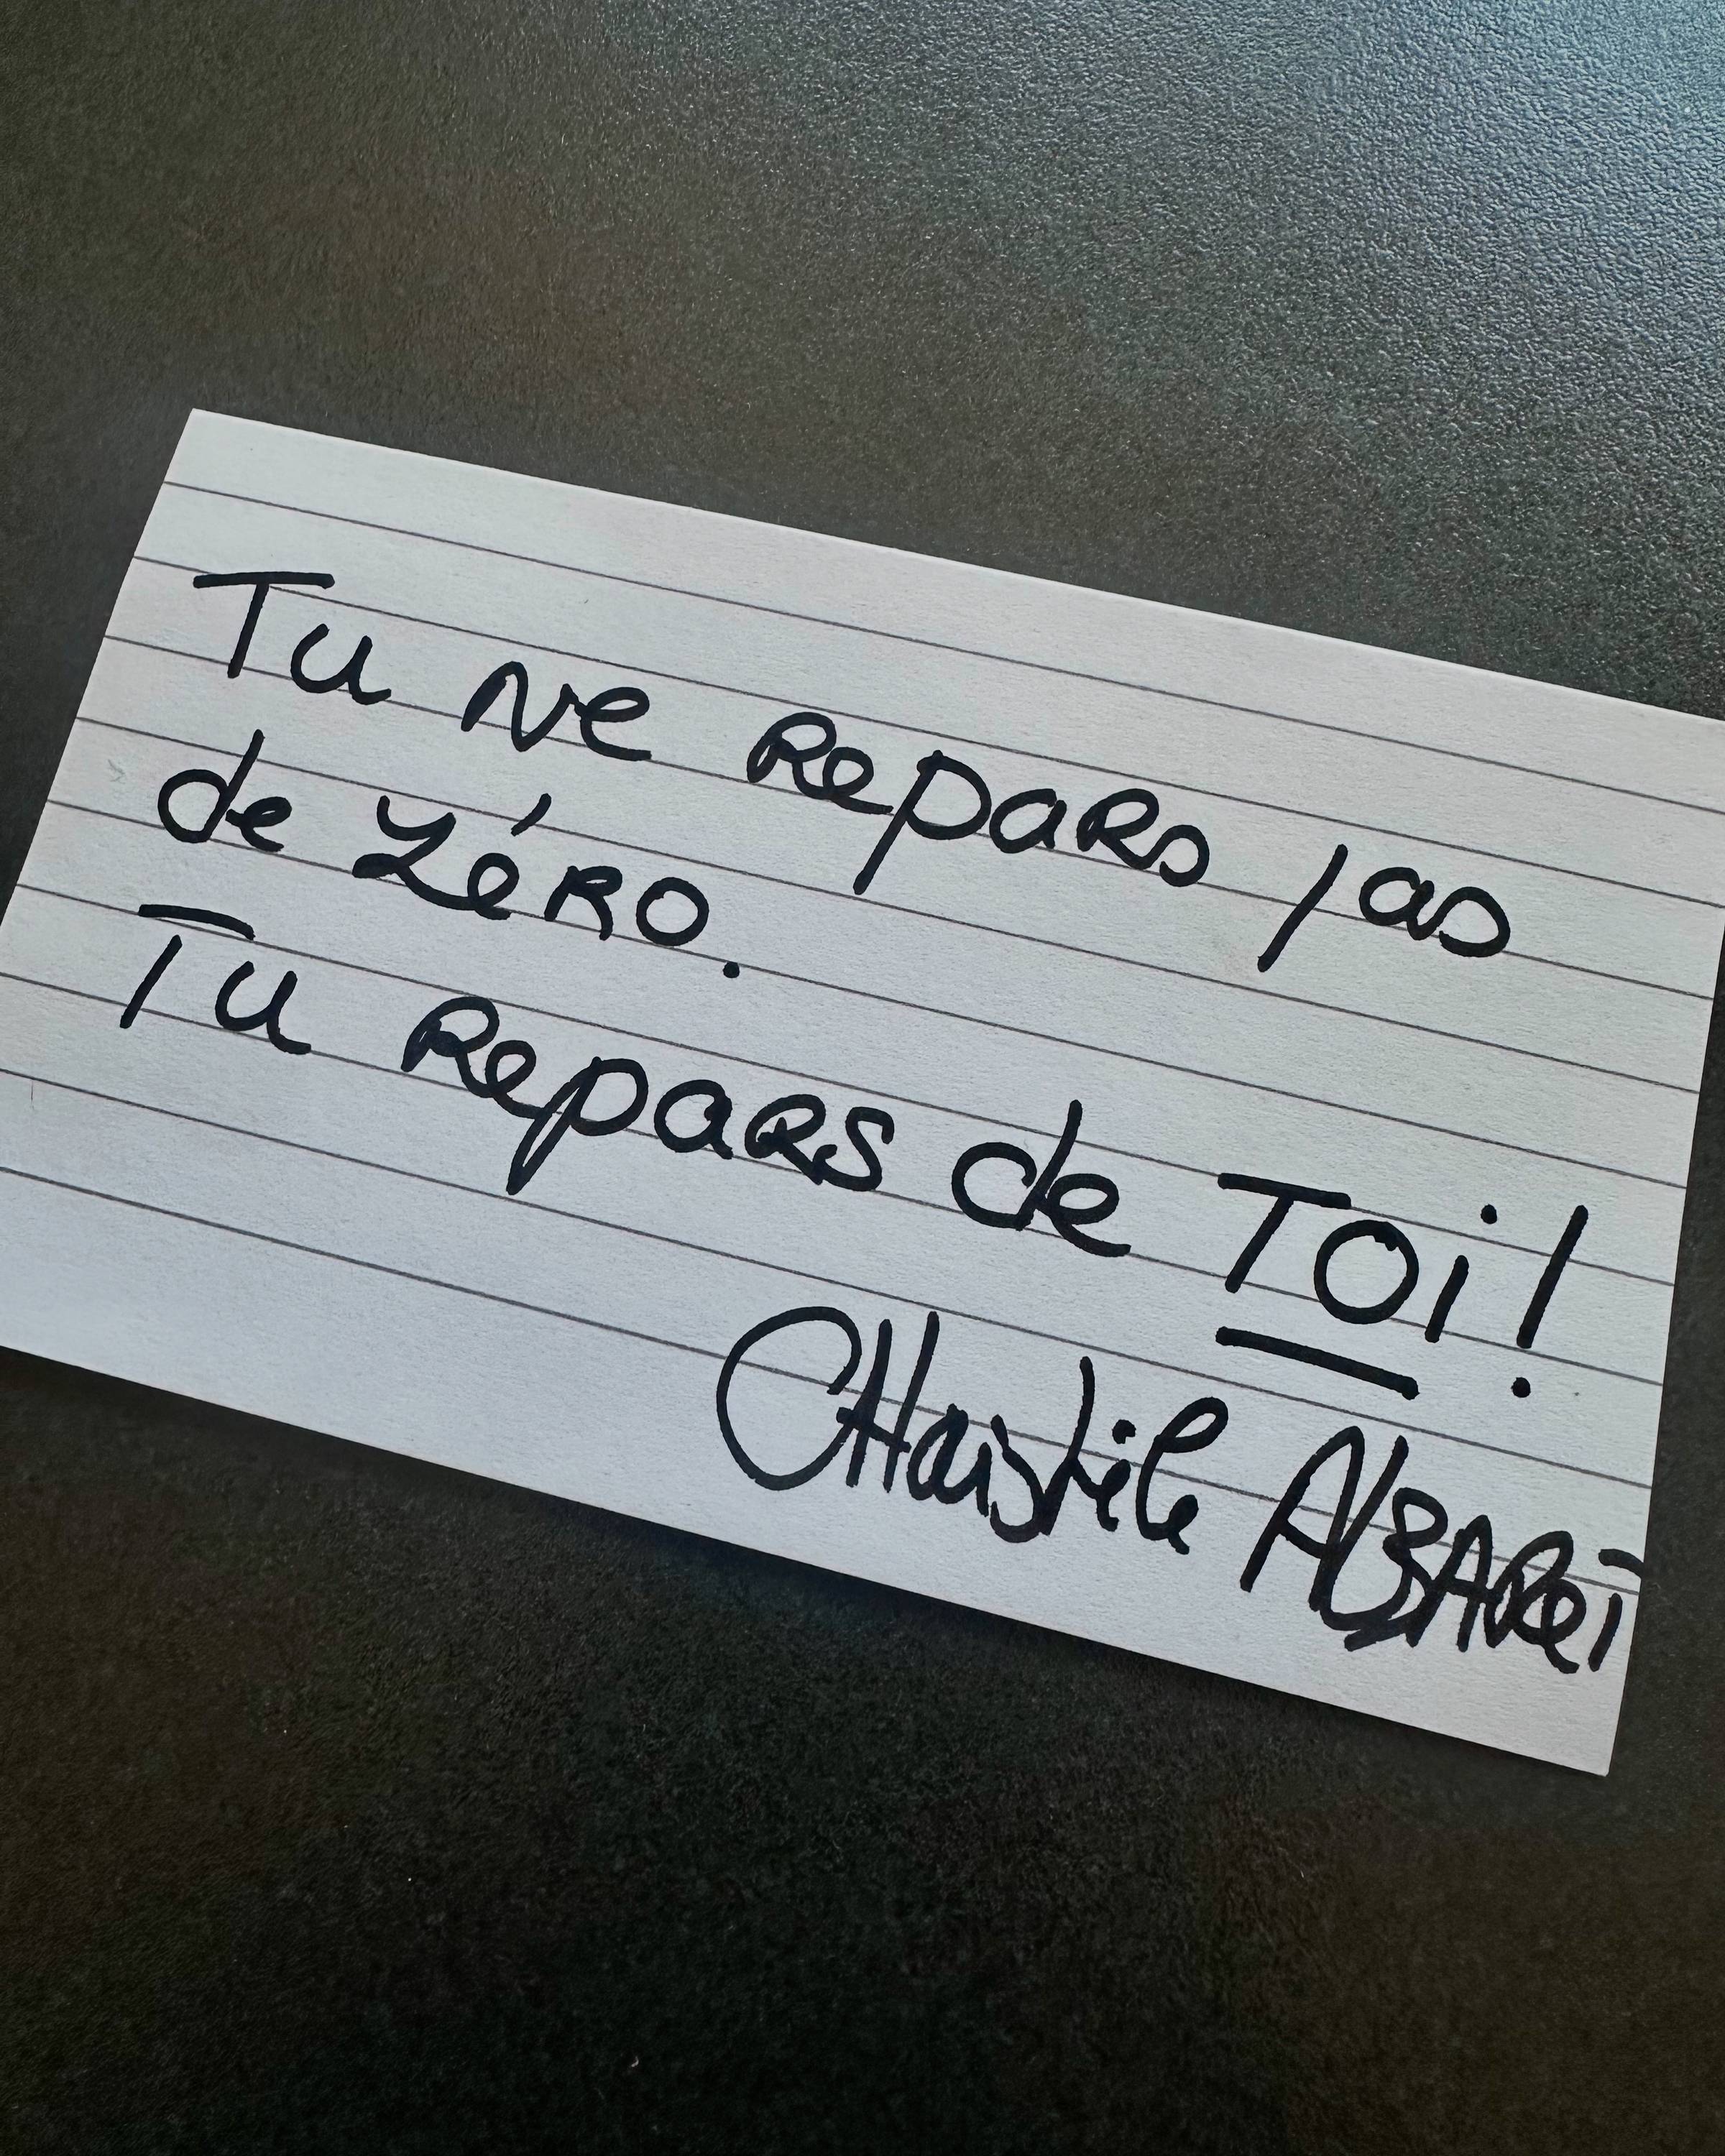 Tu ne repars pas
de zéro.
Tu repars de TOi!
CHristèle AlBAReT